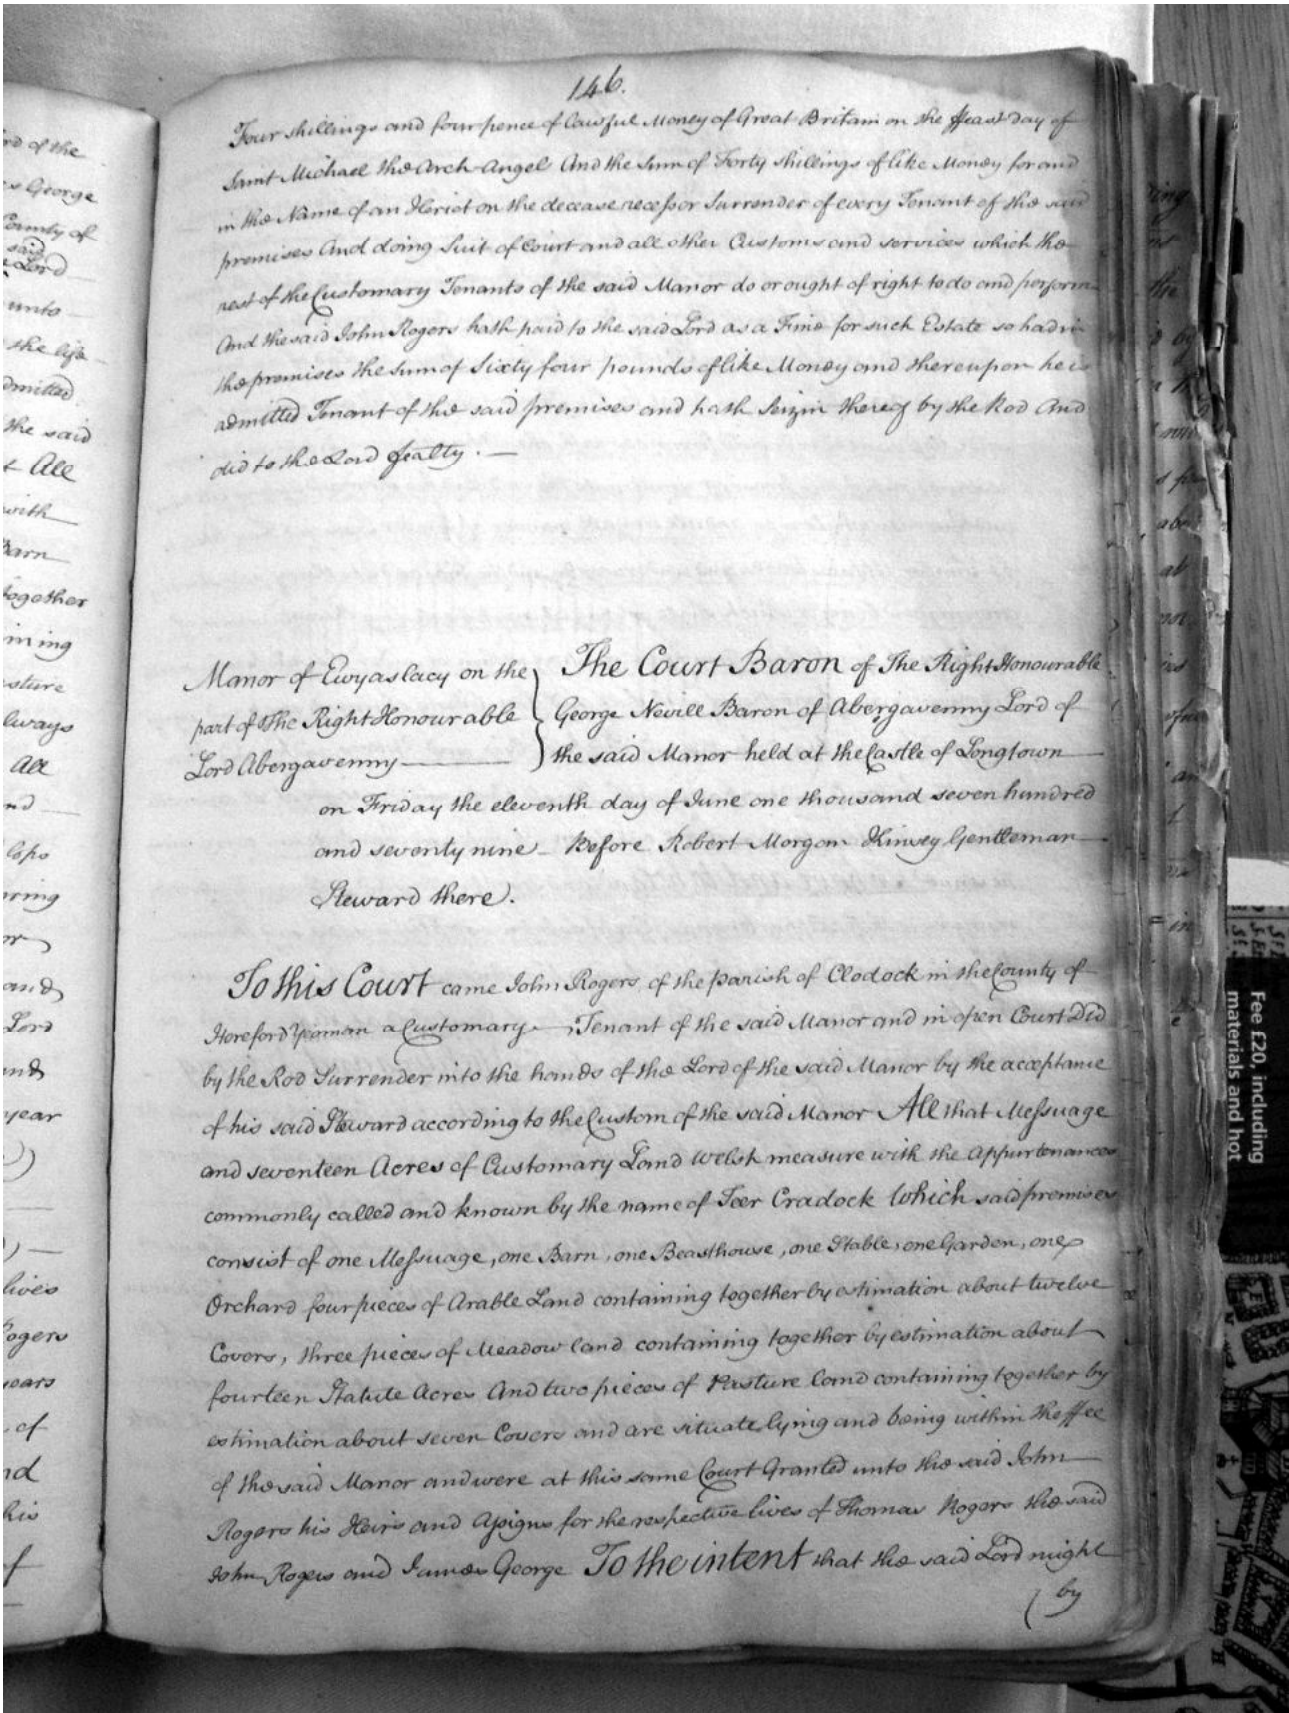 146.
Four shillings and four pence of Lawful Money of Great Britain on the ffeast day of
Saint Michael the Arch Angel And the Sum of Forty shillings of like Money for and
in the Name of an Heriot on the decease recefs or Surrender of every Tenant of the said
premises And doing Suit of Court and all other Customs and services which the
rest of the Customary Tenants of the said Manor do or ought of right to do and perform
And the said John Rogers hath paid to the said Lord as a Fine for such Estate so had in
the premises the Sum of Sixty four pounds of like Money and thereupon he is
admitted Tenant of the said premises and hath Seizin thereof by the Rod And
did to the Lord ffealty. —
Manor of Ewyaslacy on the
part of The Right Honourable
Lord Abergavenny
The Court Baron of The Right Honourable
George Nevill Baron of Abergavenny Lord of
the said Manor held at the Castle of Longtown
on Friday the eleventh day of June one thousand seven hundred
and seventy nine — Before Robert Morgan Kinsey Gentleman
Steward there.
To this Court came John Rogers of the parish of Clodock in the County of
Hereford Yeoman a Customary Tenant of the said Manor and in open Court Did
by the Rod Surrender into the hands of the Lord of the said Manor by the acceptance
of his said Steward according to the Custom of the said Manor All that Mefsuage
and seventeen Acres of Customary Land Welsh measure with the Appurtenances
commonly called and known by the name of Teer Cradock Which said premises
consist of one Mefsuage, one Barn, one Beasthouse, one Stable, one Garden, one
Orchard four pieces of Arable Land containing together by estimation about twelve
Covers, three pieces of Meadow land containing together by estimation about
fourteen Statute Acres And two pieces of Pasture Land containing together by
estimation about seven Covers and are situate lying and being within the ffee
of the said Manor and were at this same Court Granted unto the said John
Rogers his Heirs and Afsigns for the respective lives of Thomas Rogers the said
John Rogers and James George To the intent that the said Lord might
by
rd of the
s George
County of
said
Lord
unto
the life
dmitted
the said
All
with
Barn
together
ining
sture
lways
All
nd
Cops
ring
or
and
Lord
and
year
lives
Rogers
years
of
nd
his
of
Fee £20, including
materials and hot